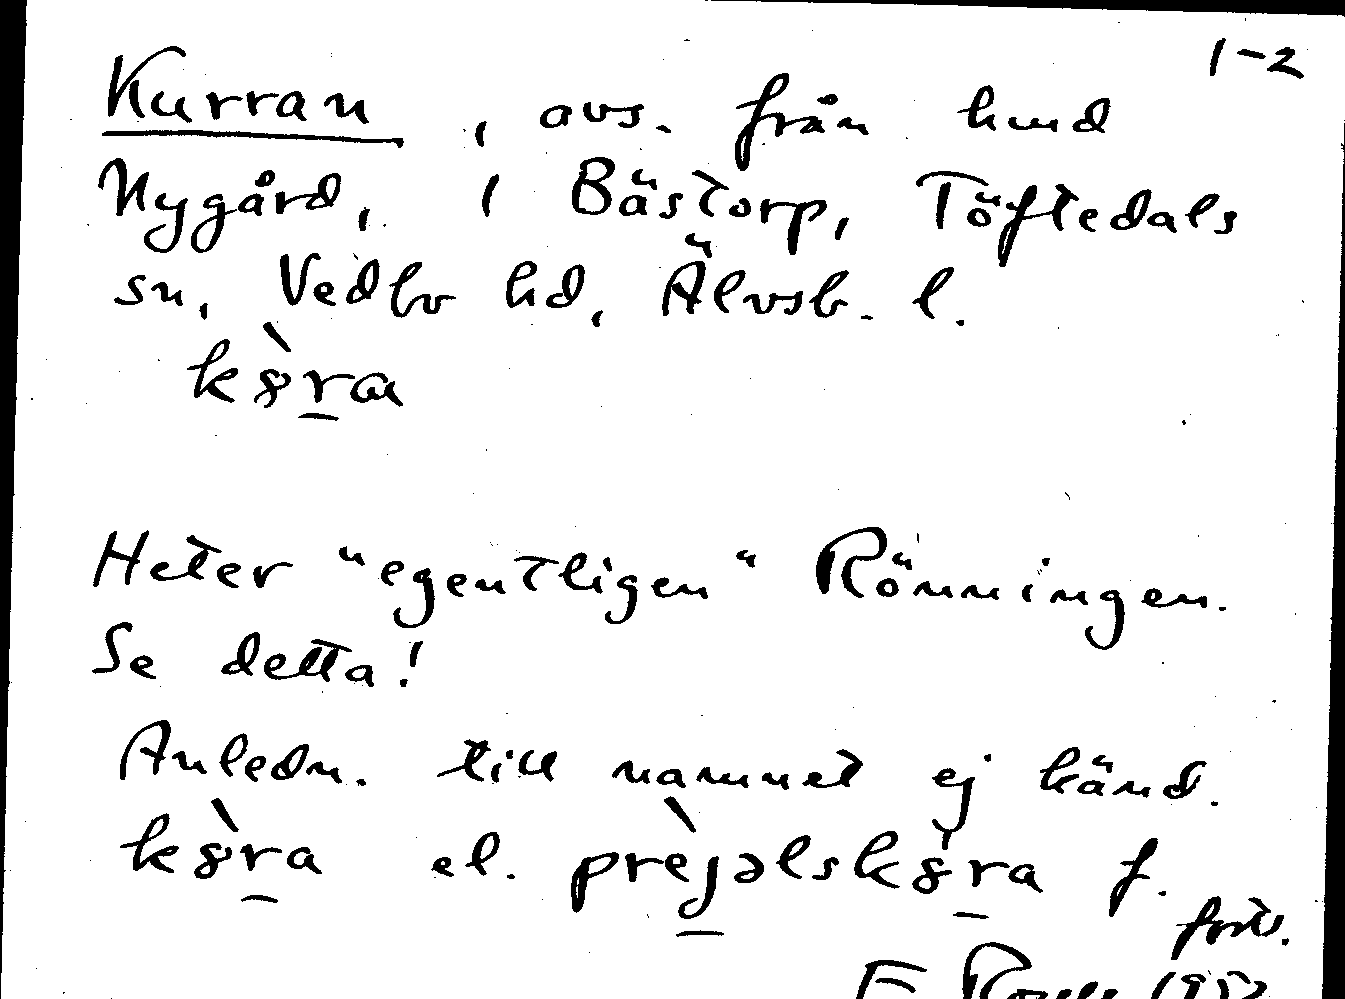 1-2
Kurran, avs. från hmd
Nygård, i Bästorp, Töftedals
sn, Vedbo hd, Älvsb. l.
k8̀ra
Heter "egentligen" Rönningen.
Se detta!
Anledn. till namnet ej känd.
k8̀ra el. prèjəlsk8̀ra f.
forts.